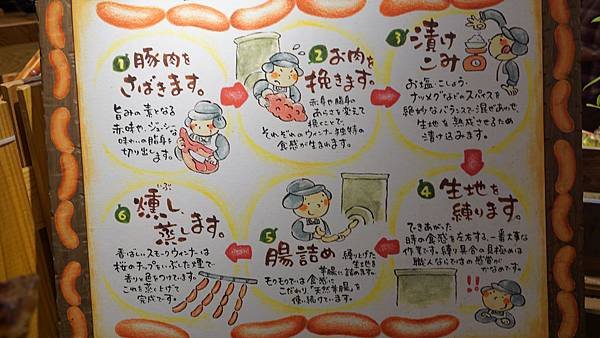 1 豚肉を
さばきます。
旨みの素となる
赤味や、ジューシーな
味わいの脂身を
切り出します。
2 お肉を
挽きます。
赤身や脂身の
あらさを変えて
挽くことで、
それぞれのウィンナー独特の
食感が生まれます。
3 漬け
こみ
お塩、こしょう、
ナツメグなどのスパイスを
絶妙なバランスで混ぜあわせ、
生地を熟成させるため
漬け込みます。
4 生地を
練ります。
できあがった
時の食感を左右する、一番大事な
作業です。練り具合の見極めは
職人ならではの感覚が
かなめです。
!!
5 腸詰め
練り上げた
生地を
羊腸に詰めます。
モクモクでは食感に
こだわり「天然羊腸」を
使い続けています。
6 燻し、
いぶ
蒸します。
香ばしいスモークウィンナーは
桜のチップをいぶした煙で
香りや色をつけています。
これを蒸し上げて
完成です。